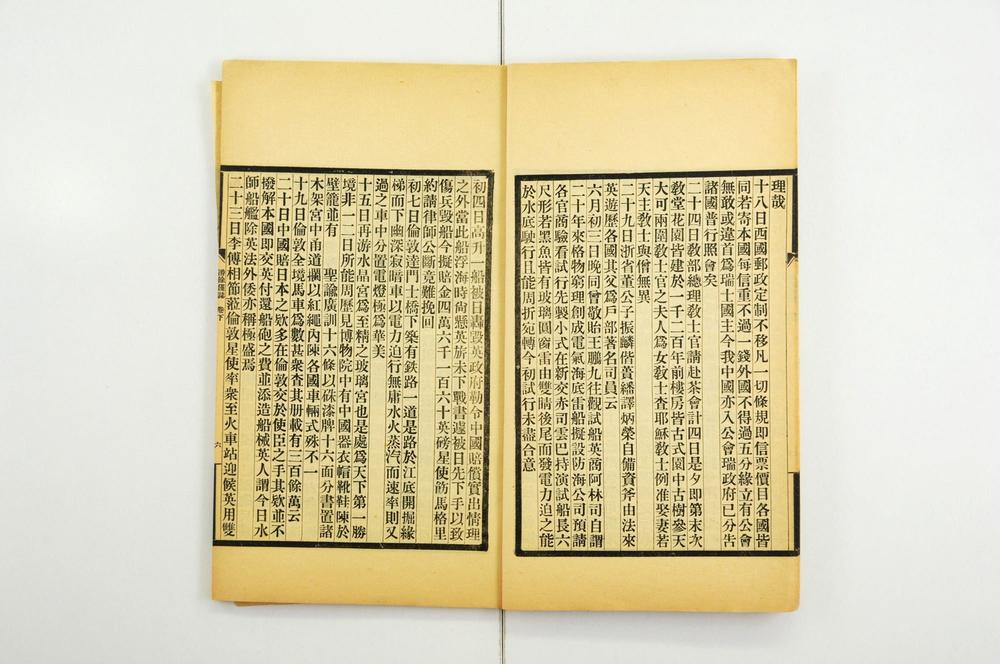 理哉
十八日西國郵政定制不移凡一切條規即信票價目各國皆
同若寄本國每信重不過一錢外國不得過五分緣立有公會
無敢或違首爲瑞士國主今我中國亦入公會瑞政府已分告
諸國普行照會矣
二十四日敎部總理敎士官請赴茶會計四日是夕即第末次
敎堂花園皆建於一千二百年前樓房皆古式園中古樹參天
大可兩圍敎士官之夫人爲女敎士査耶穌敎士例准娶妻若
天主敎士與僧無異
二十九日浙省董公子振麟偕黃譯炳榮自備資斧由法來
英遊歷各國其父爲戶部著名司員云
六月初三日晚同曾敬貽王鵬九往觀試船英商阿林司自謂
二十年來格物窮理創成電氣海底雷船擬設防海公司預請
各官商驗看試行先製小式在新交赤司雲巴持演試船長六
尺形若黑魚皆有玻璃圓窗雷由雙睛後尾而發電力迫之能
於水底駛行且能周折宛轉今初試行未盡合意
初四日高升一船被日轟毀英政府勒令中國賠償實出情理
之外當此船浮海時尙懸英旂未下戰書遽被日先下手以致
傷兵毀船今擬賠金四萬六千一百六十英磅星使飭馬格里
約請律師公斷竟難挽回
初七日倫敦達門士橋下築有鉄路一道是路於江底開掘緣
梯而下幽深寂暗車以電力迫行無庸水火蒸汽而速率則又
過之車中分置電燈極爲華美
十五日再游水晶宮爲至精之玻璃宮也是處爲天下第一勝
境非一二日所能周歷見博物院中有中國器衣帽靴鞋陳於
壁籠並有 聖諭廣訓十六條以硃漆牌十六面分書置諸
木架宮中甬道攔以紅繩內陳各國車輛式殊不一
十九日倫敦全境馬車爲數甚衆査其册載有三百餘萬云
二十日中國賠日本之欵多在倫敦交於使臣之手其欵並不
撥解本國即交英付還船砲之費並添造船械英人謂今日水
師船艦除英法外倭亦稱極盛焉
二十三日李傅相節蒞倫敦星使率衆至火車站迎候英用雙
卷下
六